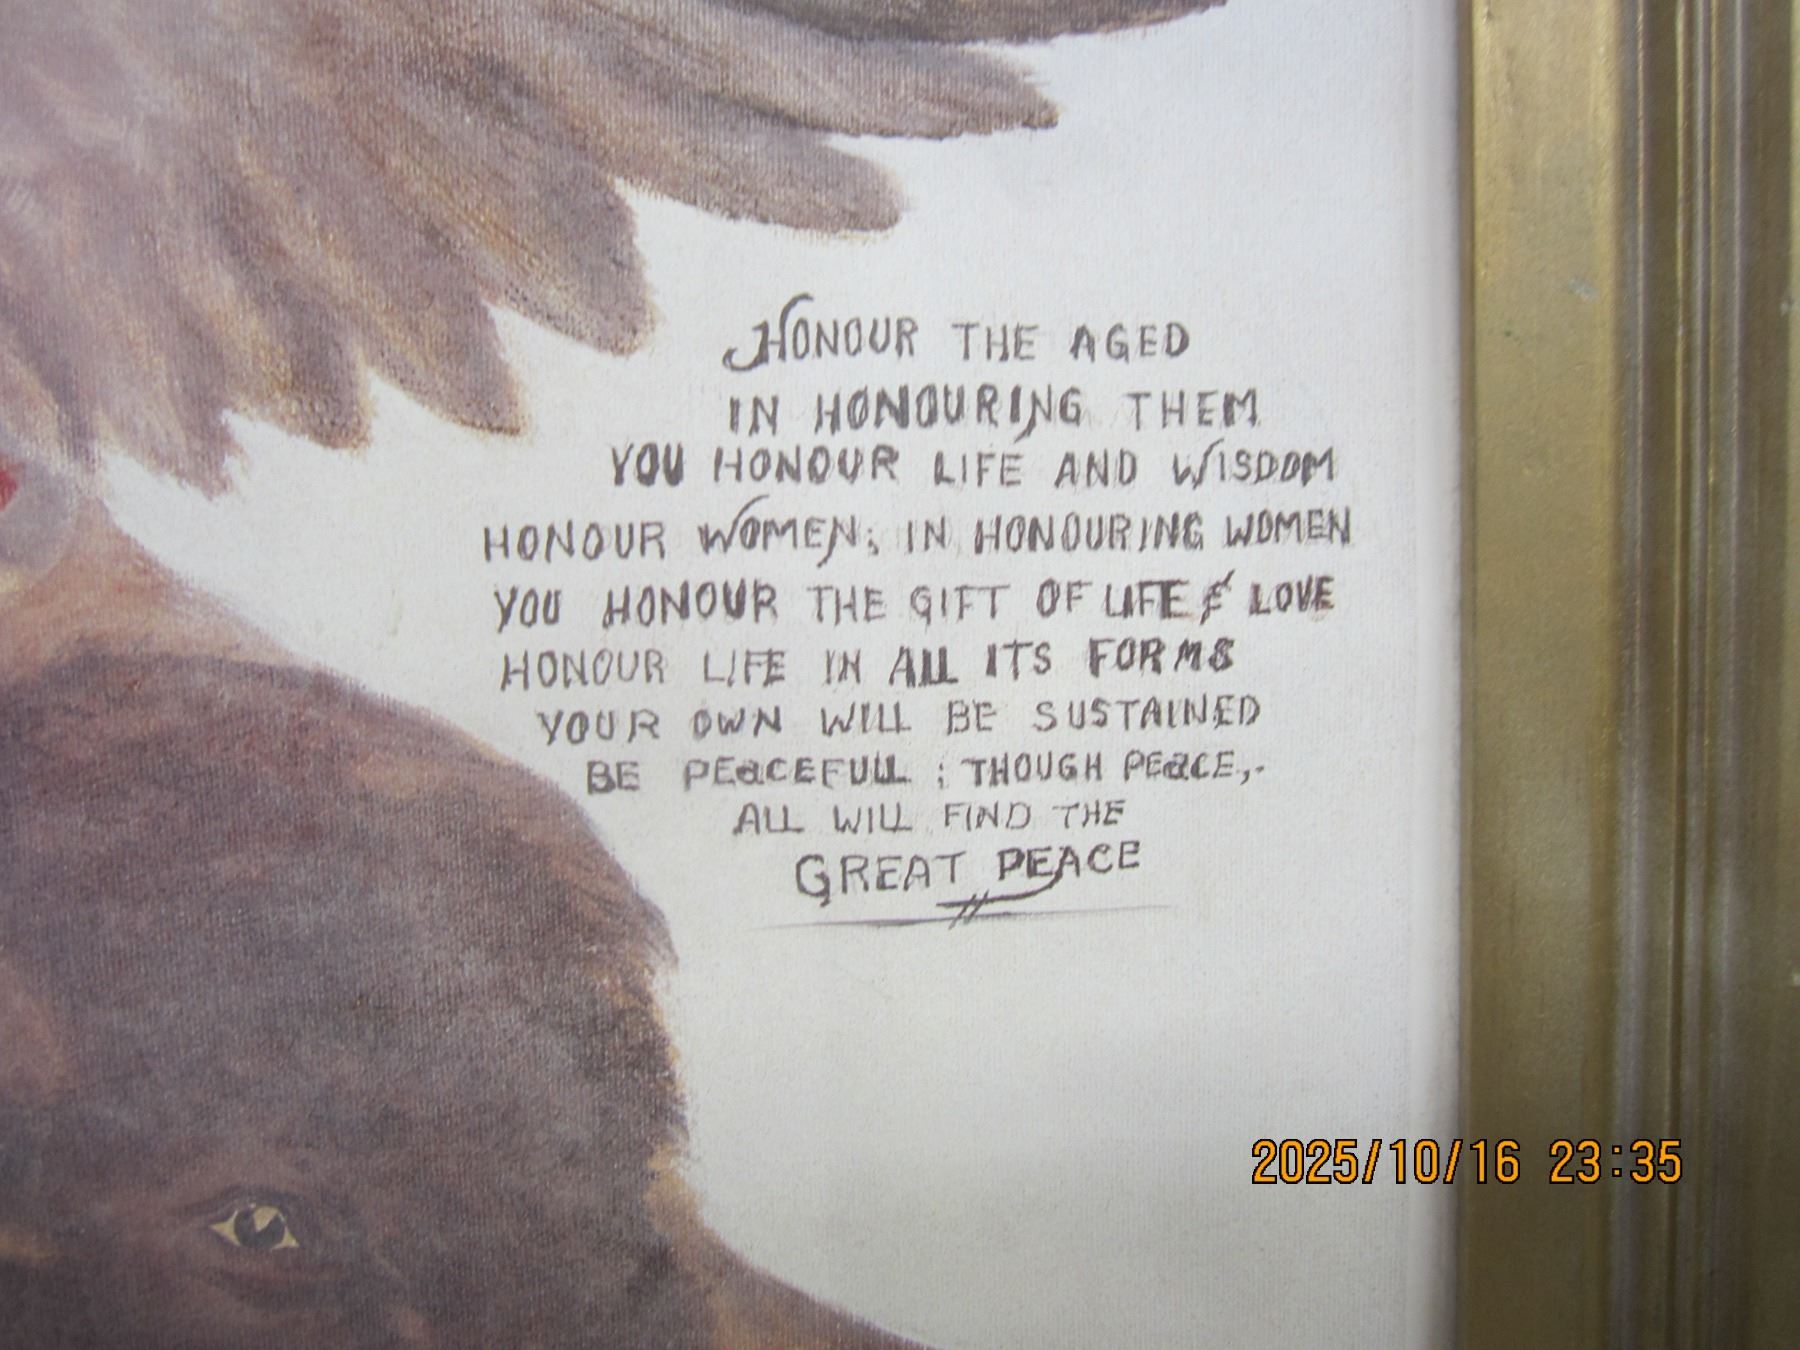 HONOUR THE AGED
IN HONOURING THEM
YOU HONOUR LIFE AND WISDOM
HONOUR WOMEN; IN HONOURING WOMEN
YOU HONOUR THE GIFT OF LIFE & LOVE
HONOUR LIFE IN ALL ITS FORMS
YOUR OWN WILL BE SUSTAINED
BE PEaCEFULL ; THOUGH PEaCE,.
ALL WILL FIND THE
GREAT PEACE
2025/10/16 23:35